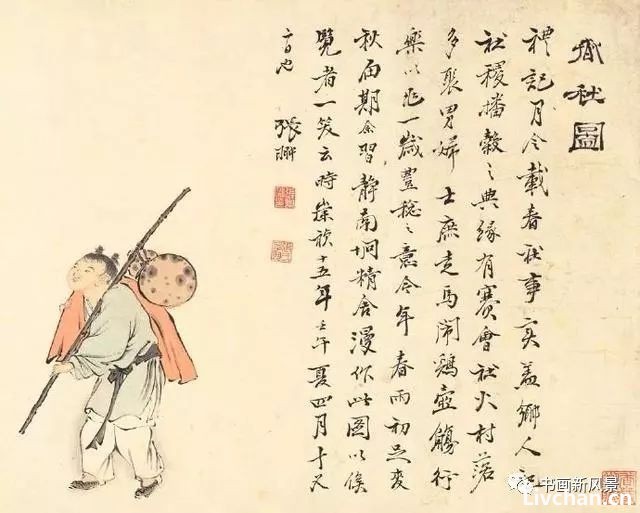 春社圖
禮記月令載春社事實蓋鄉人祀
社稷播穀之典緣有賽會社火村落
多聚男婦士庶走馬鬧鷄壺觴行
樂以兆一歲豐稔之意今年春雨初足麥
秋届期余習靜南坰精舍漫作此圖以俟
覽者一笑云時崇禎十五年壬午夏四月十又
日也
張翀
书画新风景
Livchan.cn